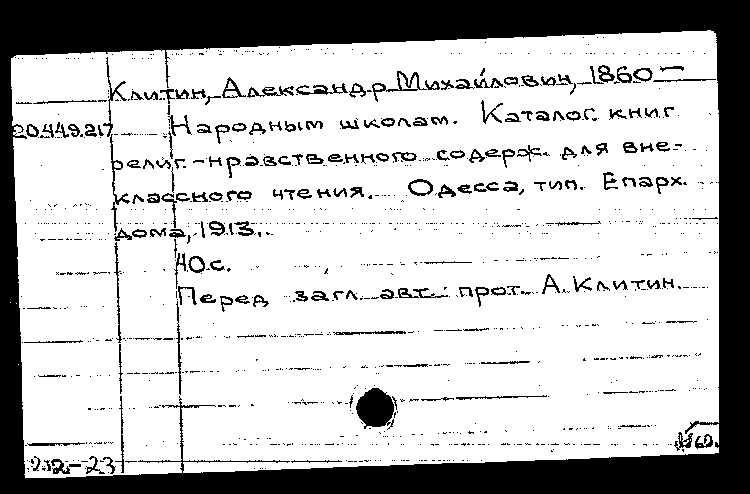 Клитин, Александр Михайлович, 1860—
20.449.217 Народным школам. Каталог книг
религ.-нравственного содерж. для вне-
классного чтения. Одесса, тип. Епарх.
дома, 1913.
40 с.
Перед загл. авт.: прот. А. Клитин.